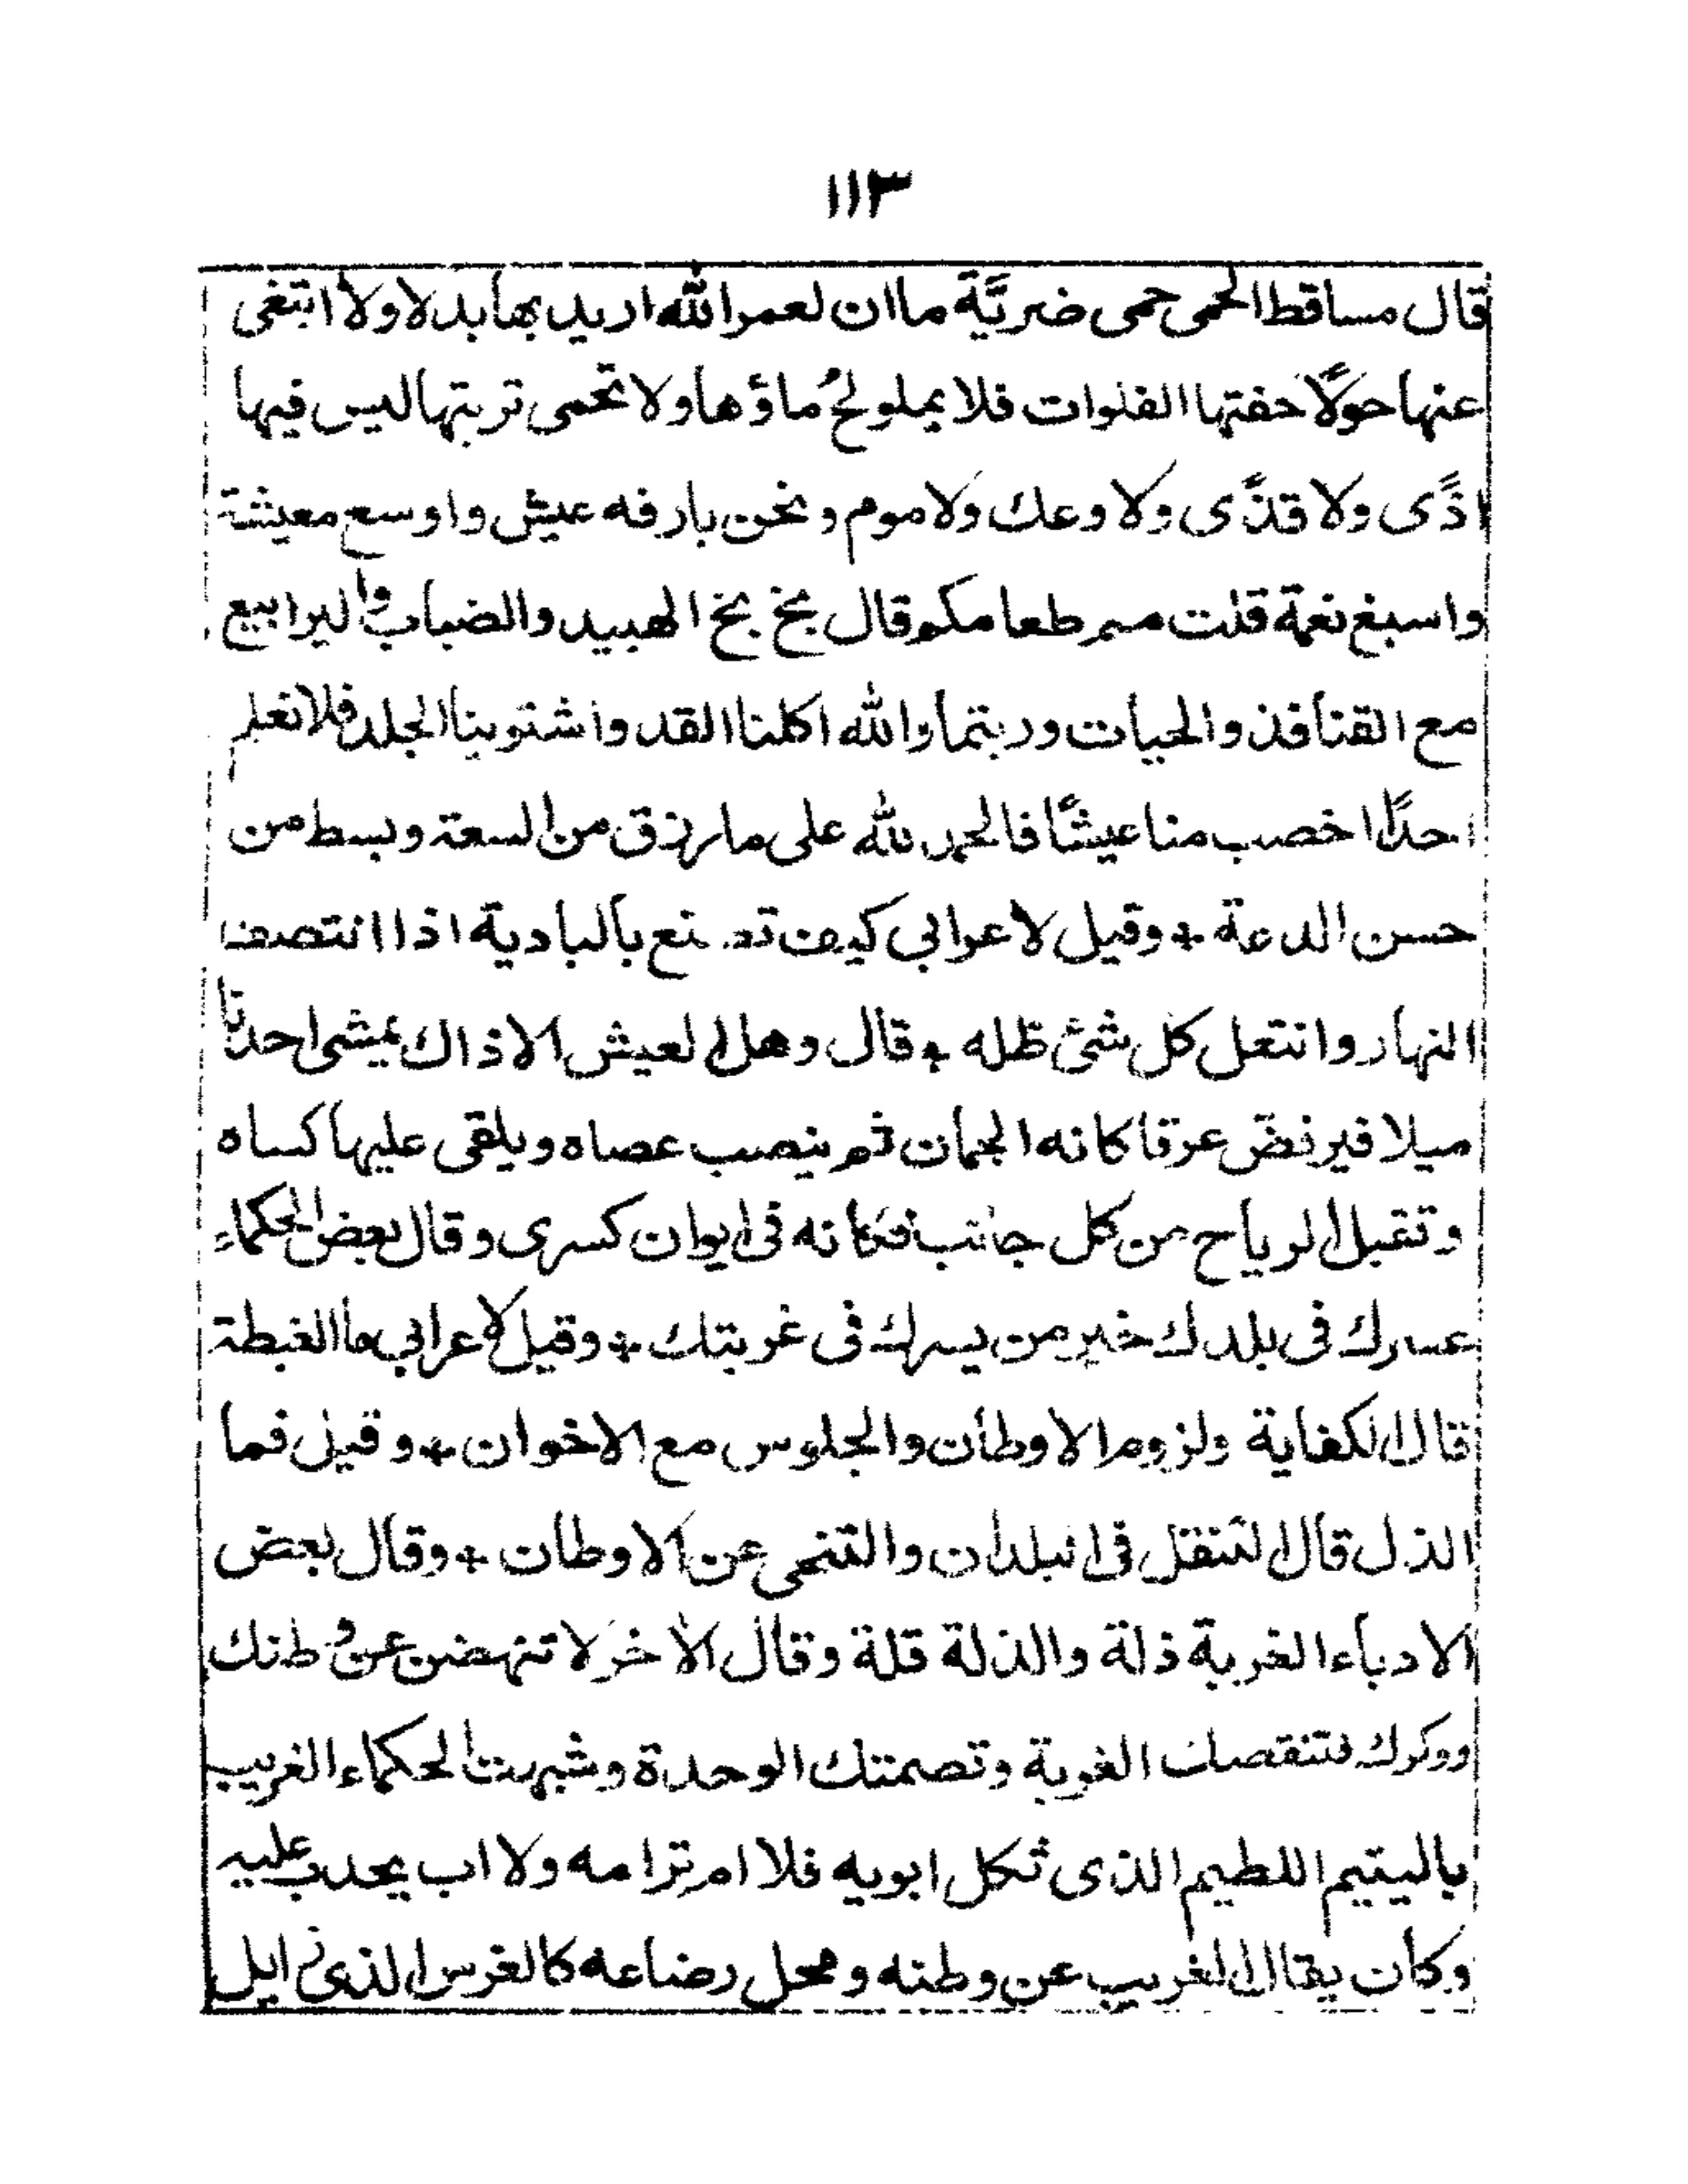 ١١٣
قال مساقط الحمى حمى ضريَّة ما ان لعمر الله اريد بها بدلا ولا ابتغى
عنها حولًا حفتها الفلوات فلا يملولحُ ماؤها ولا تحمى تربتها ليس فيها
اذًى ولا قذًى ولا وعك ولا موم ونحن بارفه عيش واوسع معيشة
واسبغ نعمة قلت مم طعامكم قال بخ بخ الهبيد والضباب واليرابيع
مع القنافذ والحيات وربتما والله اكلنا القد واشتوينا الجلد فلا نعلم
احدًا اخصب منا عيشًا فالحمد لله على ما رزق من السعة وبسط من
حسن الدعة * وقيل لاعرابي كيف تصنع بالبادية اذا انتصف
النهار وانتعل كل شئ ظله * قال وهل العيش الا ذاك يمشى احدنا
ميلا فيرفض عرقا كانه الجمان ثم ينصب عصاه ويلقى عليها كساه
وتقبل الرياح من كل جانب فكانه فى ايوان كسرى وقال بعض الحكماء
عسرك فى بلدك خير من يسرك فى غربتك * وقيل لاعرابي ما الغبطة
قال الكفاية ولزوم الاوطان والجلوس مع الاخوان * وقيل فما
الذل قال التنقل فى البلدان والتنحى عن الاوطان * وقال بعض
الادباء الغربة ذلة والذلة قلة وقال الاخر لا تنهضن عن وطنك
ووكرك فتنقصك الغربة وتصمتك الوحدة وشبهت الحكماء الغريب
باليتيم اللطيم الذى ثكل ابويه فلا ام ترامه ولا اب يحدب عليه
وكان يقال الغريب عن وطنه ومحل رضاعه كالغرس الذى زايل